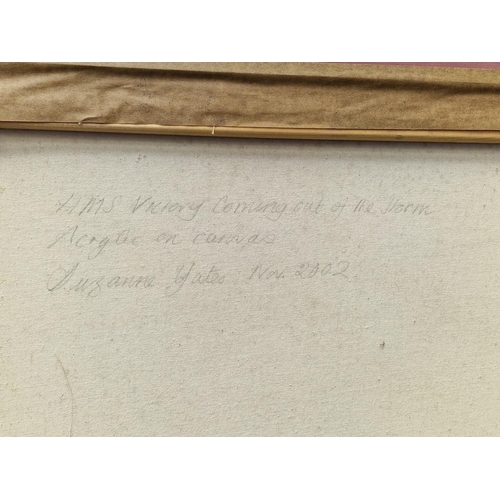 HMS Victory Coming out of the storm
Acrylic on canvas
Suzanne Yates Nov. 2002